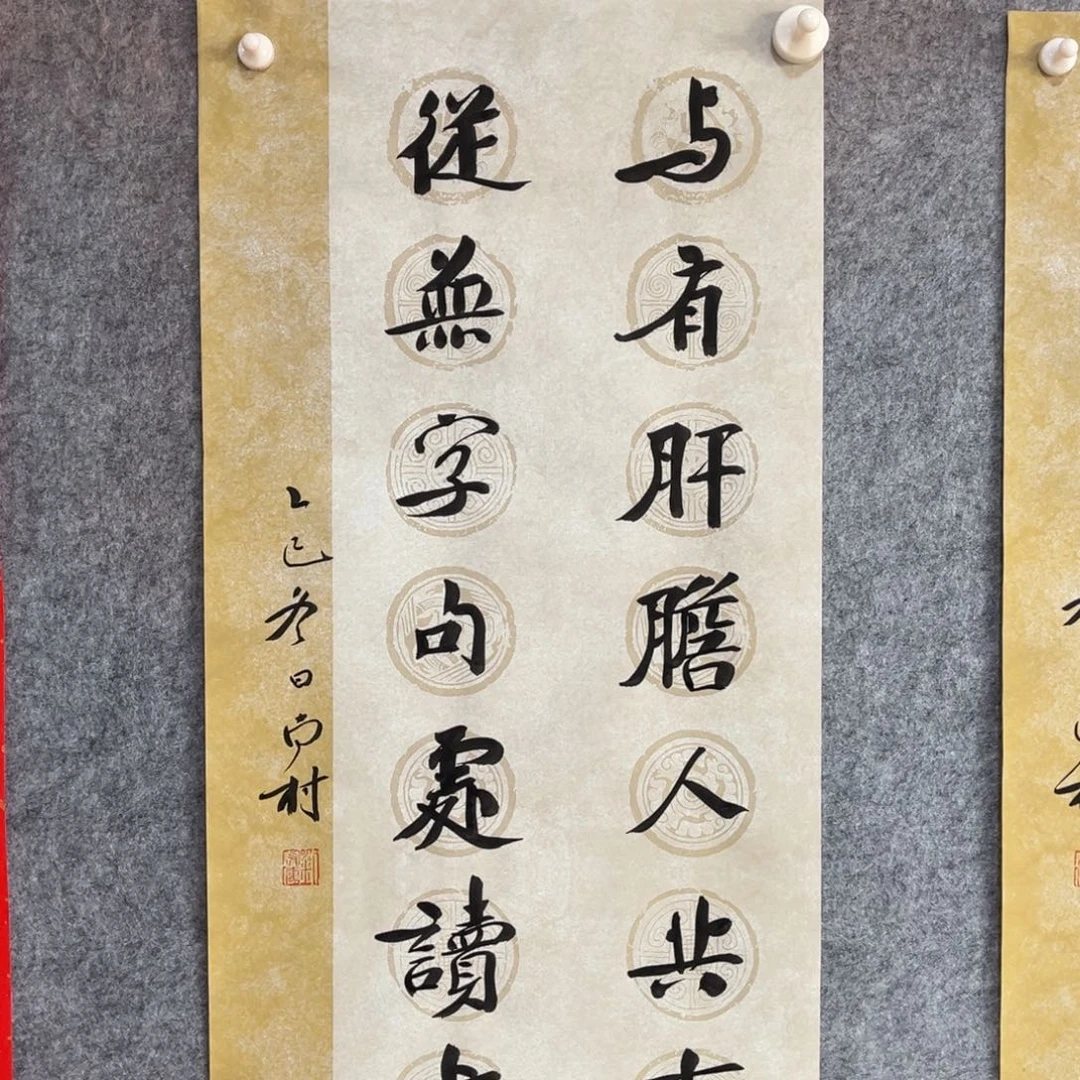 与有肝膽人共
從無字句處讀
乙巳冬日
村